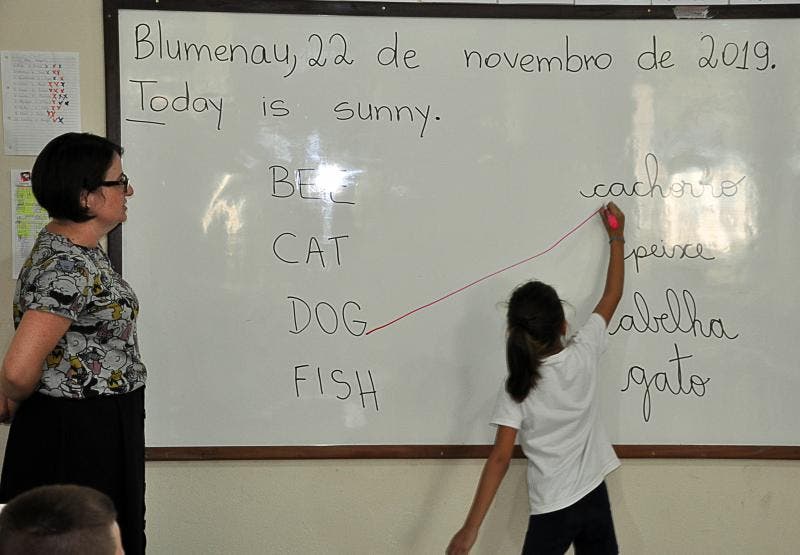 Blumenau, 22 de novembro de 2019.
Today is sunny.
BEE cachorro
CAT peixe
DOG abelha
FISH gato